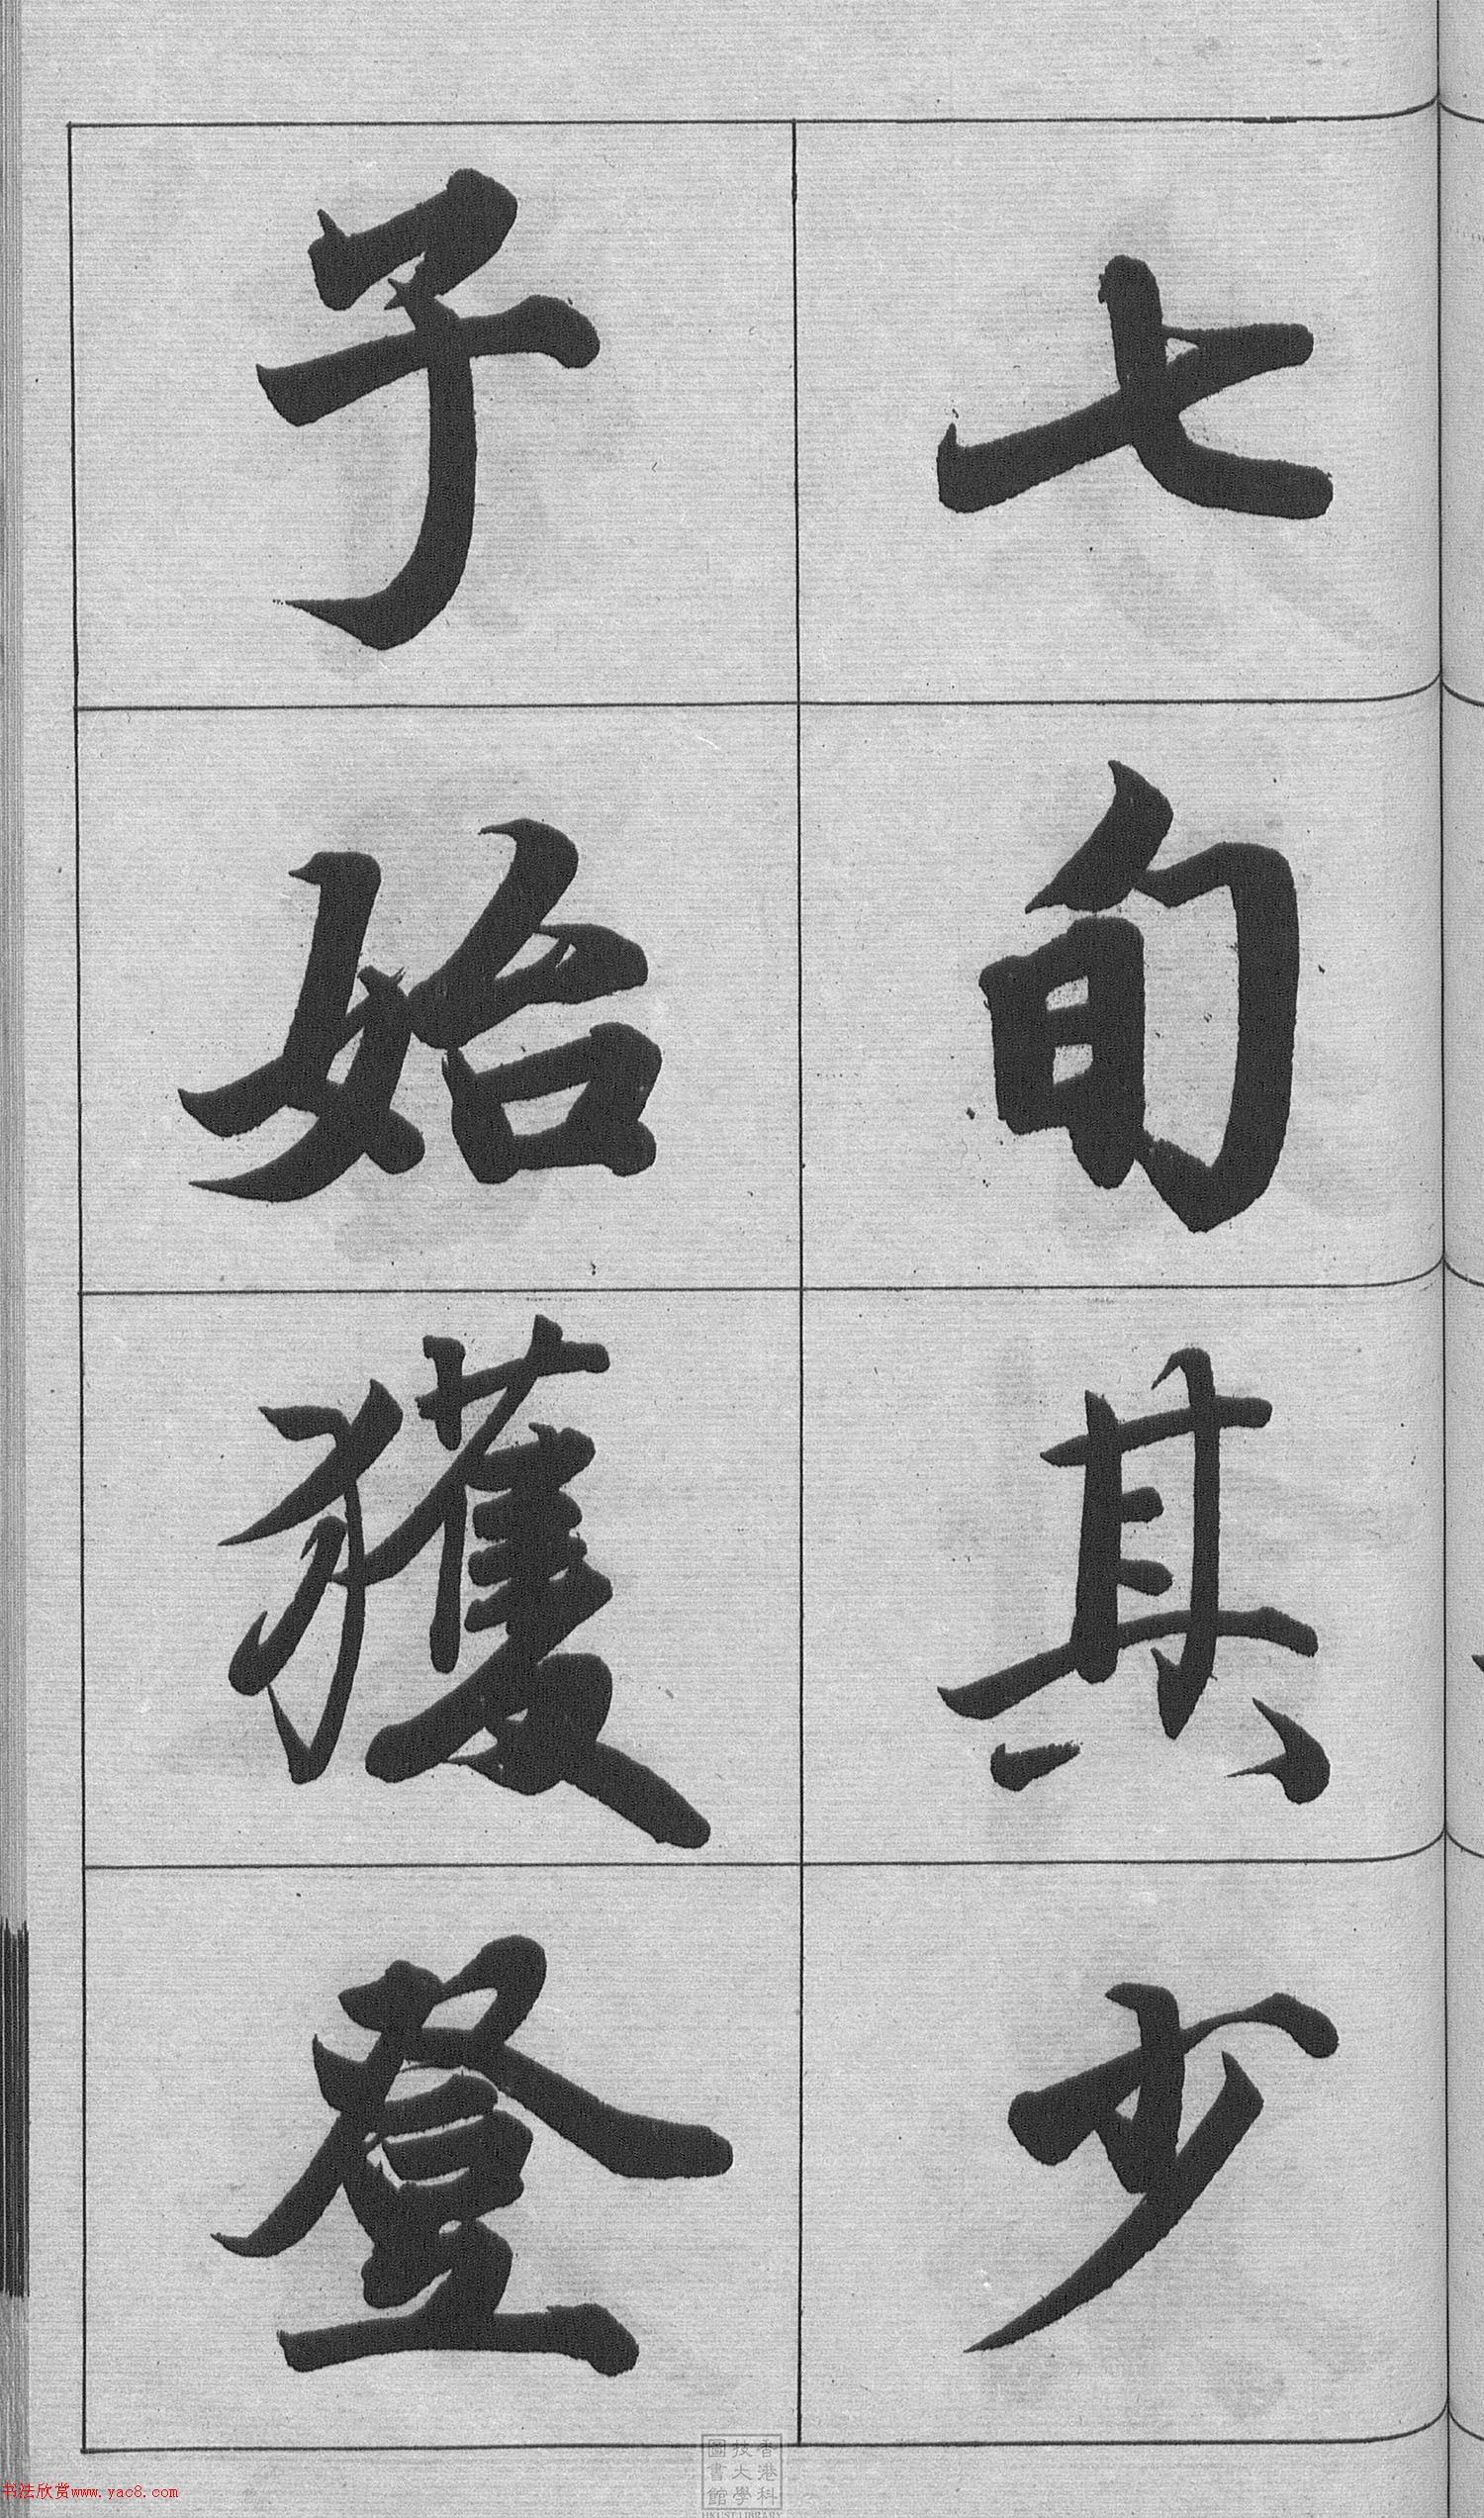 七旬其少
子始獲登
香港科
技大學
圖書館
HKUST LIBRARY
书法欣赏www.yac8.com